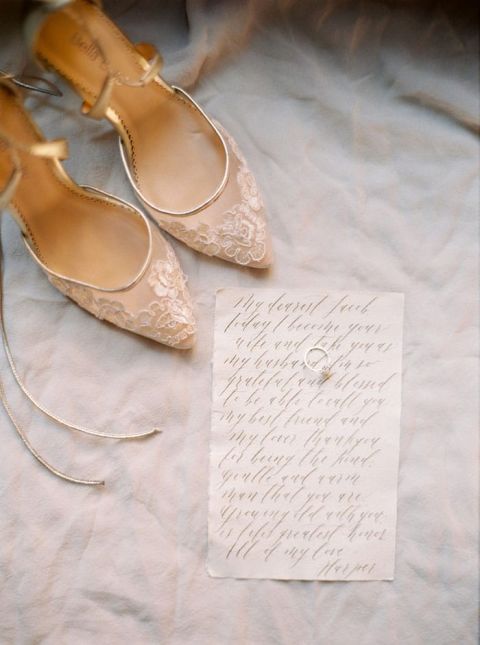 Bella B
My dearest Jacob
Today I become your
wife and take you as
my husband I'm so
grateful and blessed
to be able to call you
my best friend and
my lover thankyou
for being the kind,
gentle and warm
man that you are
Growing old with you
is life's greatest honor
All of my love
Harper